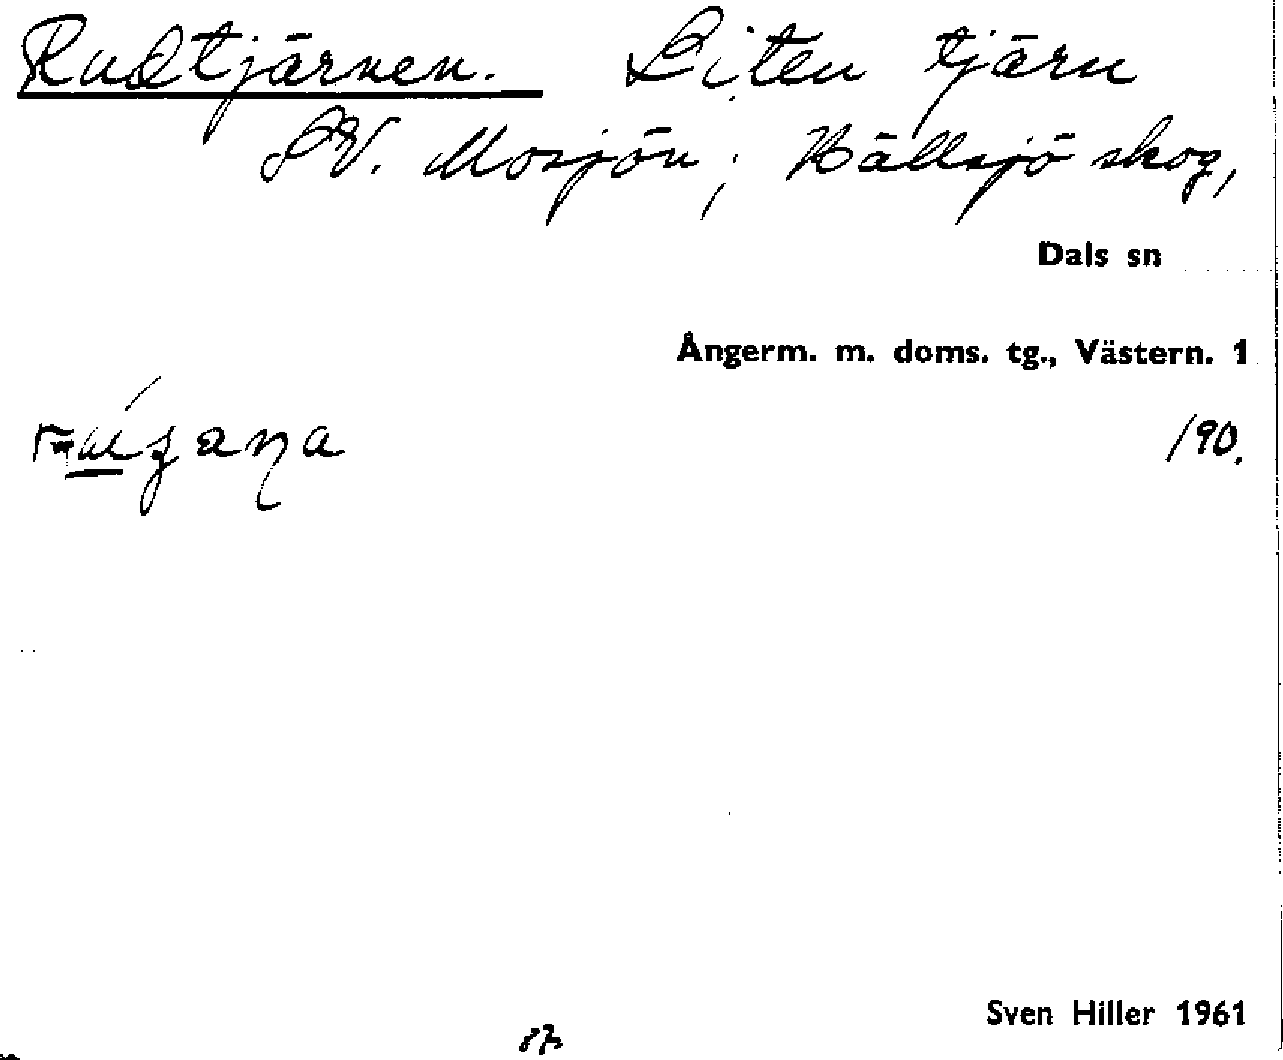 Rudtjärnen. Liten tjärn
SV. Mosjön; Hällsjö skog,
Dals sn
Ångerm. m. doms. tg., Västern. 1
190.
Sven Hiller 1961